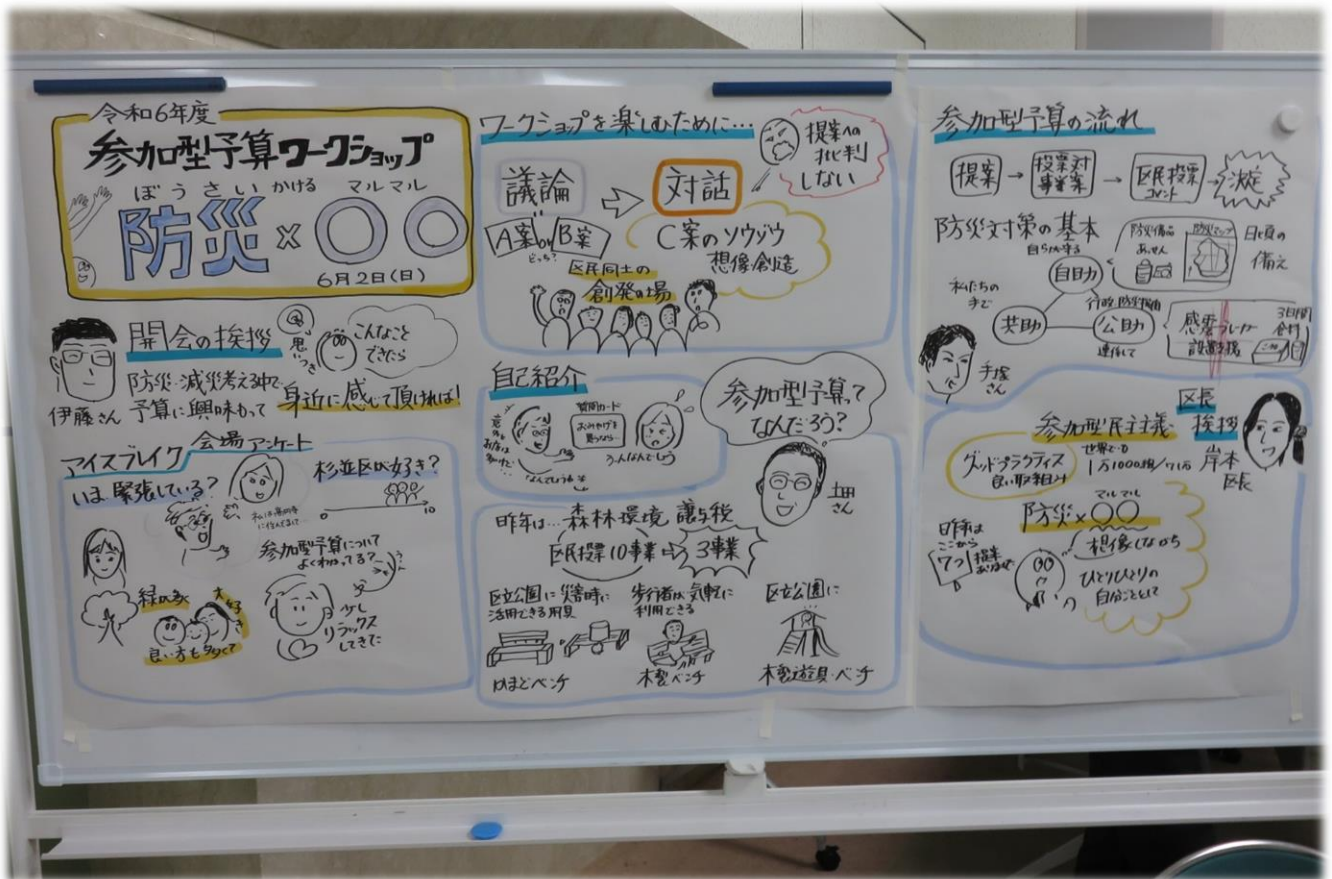 令和6年度
参加型予算ワークショップ
ぼうさい かける マルマル
防災×〇〇
6月2日(日)
開会の挨拶
思いつき
こんなこと
できたら
防災・減災考える中で
予算に興味もって 身近に感じて頂ければ!
伊藤さん
アイスブレイク 会場アンケート
いま緊張している?
杉並区が好き?
0 10
参加型予算について
よくわかってる?
緑が多
大好き
良い方も多くて
少し
リラックス
してきた
ワークショップを楽しむために…
提案への
批判
しない
議論
対話
A案orB案
どっち?
C案のソウゾウ
想像創造
区民同士の
創発の場
自己紹介
質問カード
おみやげを
買うなら
参加型予算って
なんだろう?
昨年は… 森林環境譲与税
区民投票10事業⇒3事業
区立公園に災害時に
活用できる用具
かまどベンチ
歩行者が気軽に
利用できる
木製ベンチ
区立公園に
木製遊具・ベンチ
参加型予算の流れ
提案→投票対
事業案→区民投票
コメント→決定
防災対策の基本
自らが守る
自助
私たちの
手で
共助
公助
連係して
防災備品
あっせん
防災マップ
日頃の
備え
感震ブレーカー
設置支援
3日間
食料
手塚
さん
参加型民主主義
区長
挨拶
岸本
区長
グッドプラクティス
良い取組み
世界でも
マルマル
防災×〇〇
想像しながら
ひとりひとりの
自分ごととして
昨年は
ここから
7つ